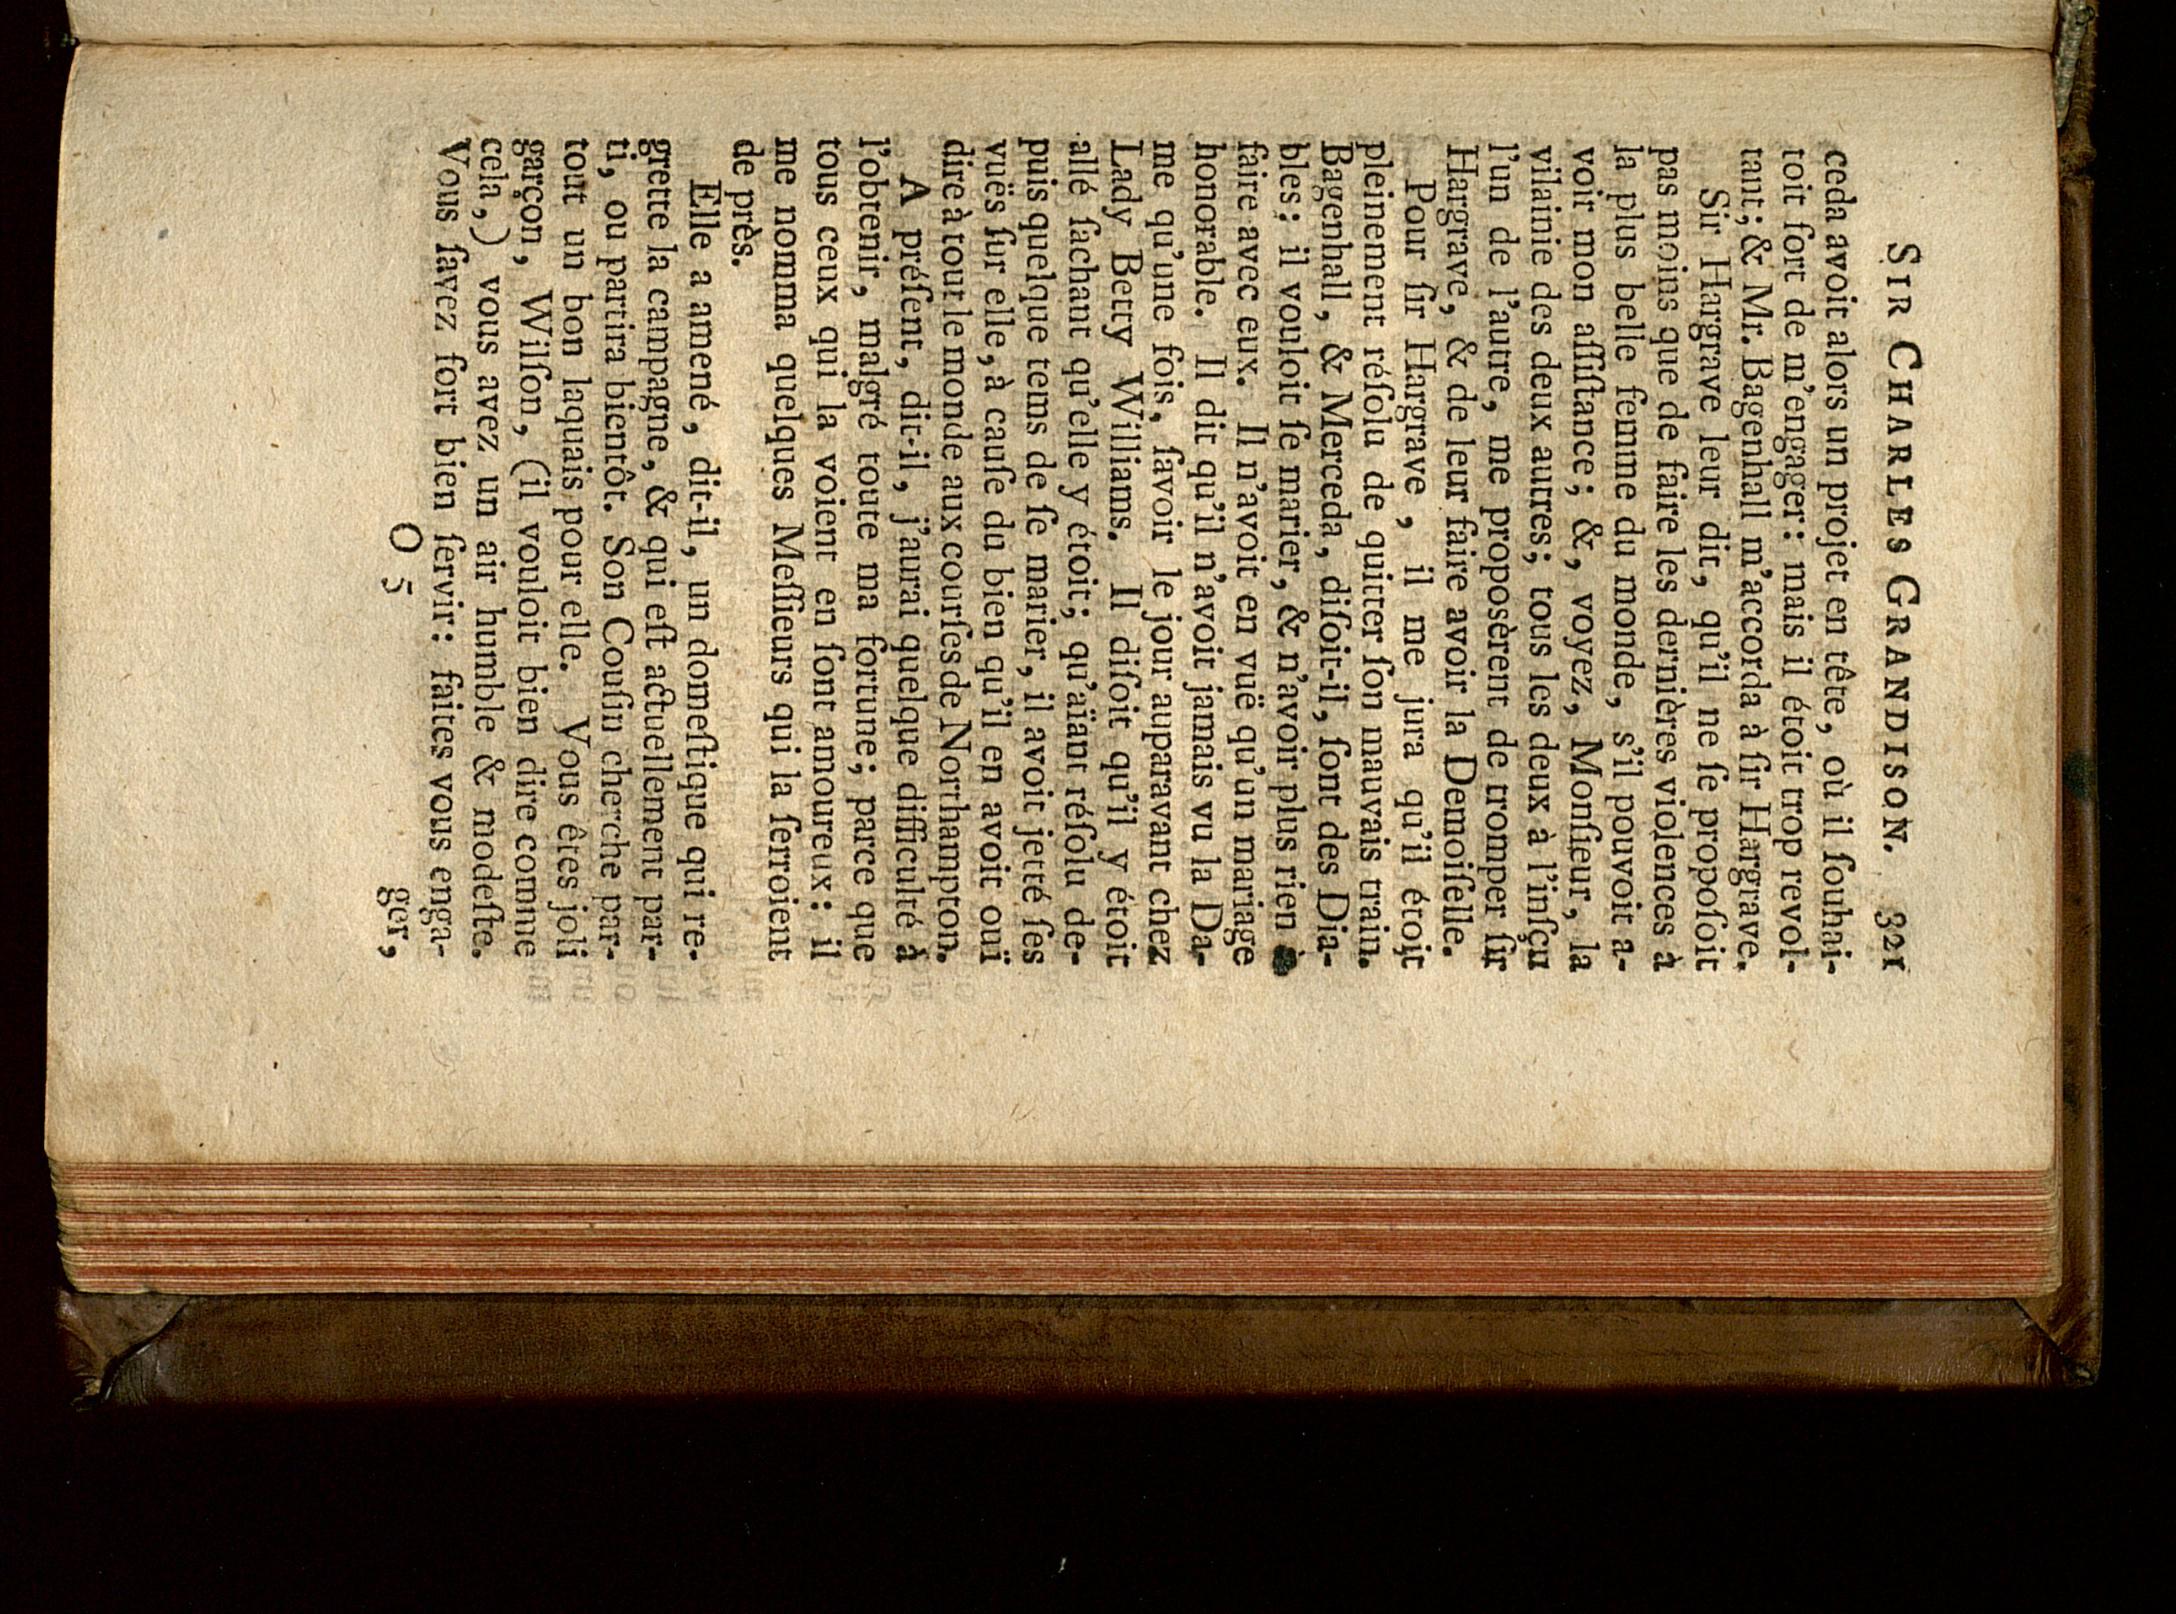 SIR CHARLES GRANDISON. 321
ceda avoit alors un projet en tête, où il ſouhai-
toit fort de m'engager: mais il étoit trop revol-
tant; & Mr. Bagenhall m'accorda à ſir Hargrave.
Sir Hargrave leur dit, qu'il ne ſe propoſoit
pas moins que de faire les dernières violences à
la plus belle femme du monde, s'il pouvoit a-
voir mon aſſiſtance; &, voyez, Monſieur, la
vilainie des deux autres; tous les deux à l'inſçu
l'un de l'autre, me proposèrent de tromper ſir
Hargrave, & de leur faire avoir la Demoiſelle.
Pour ſir Hargrave, il me jura qu'il étoit
pleinement réſolu de quitter ſon mauvais train.
Bagenhall, & Merceda, diſoit-il, ſont des Dia-
bles; il vouloit ſe marier, & n'avoir plus rien à
faire avec eux. Il n'avoit en vuë qu'un mariage
honorable. Il dit qu'il n'avoit jamais vu la Da-
me qu'une fois, ſavoir le jour auparavant chez
Lady Betty Williams. Il diſoit qu'il y étoit
allé ſachant qu'elle y étoit; qu'aïant réſolu de-
puis quelque tems de ſe marier, il avoit jetté ſes
vuës ſur elle, à cauſe du bien qu'il en avoit ouï
dire à tour le monde aux courſes de Northampton.
A préſent, dit-il, j'aurai quelque difficulté à
l'obtenir, malgré toute ma fortune; parce que
tous ceux qui la voient en ſont amoureux: il
me nomma quelques Meſſieurs qui la ſerroient
de près.
Elle a amené, dit-il, un domeſtique qui re-
grette la campagne, & qui eſt actuellement par-
ti, ou partira bientôt. Son Couſin cherche par-
tout un bon laquais pour elle. Vous êtes joli
garçon, Wilſon, (il vouloit bien dire comme
cela,) vous avez un air humble & modeſte.
Vous ſavez fort bien ſervir: faites vous enga-
O 5 ger,